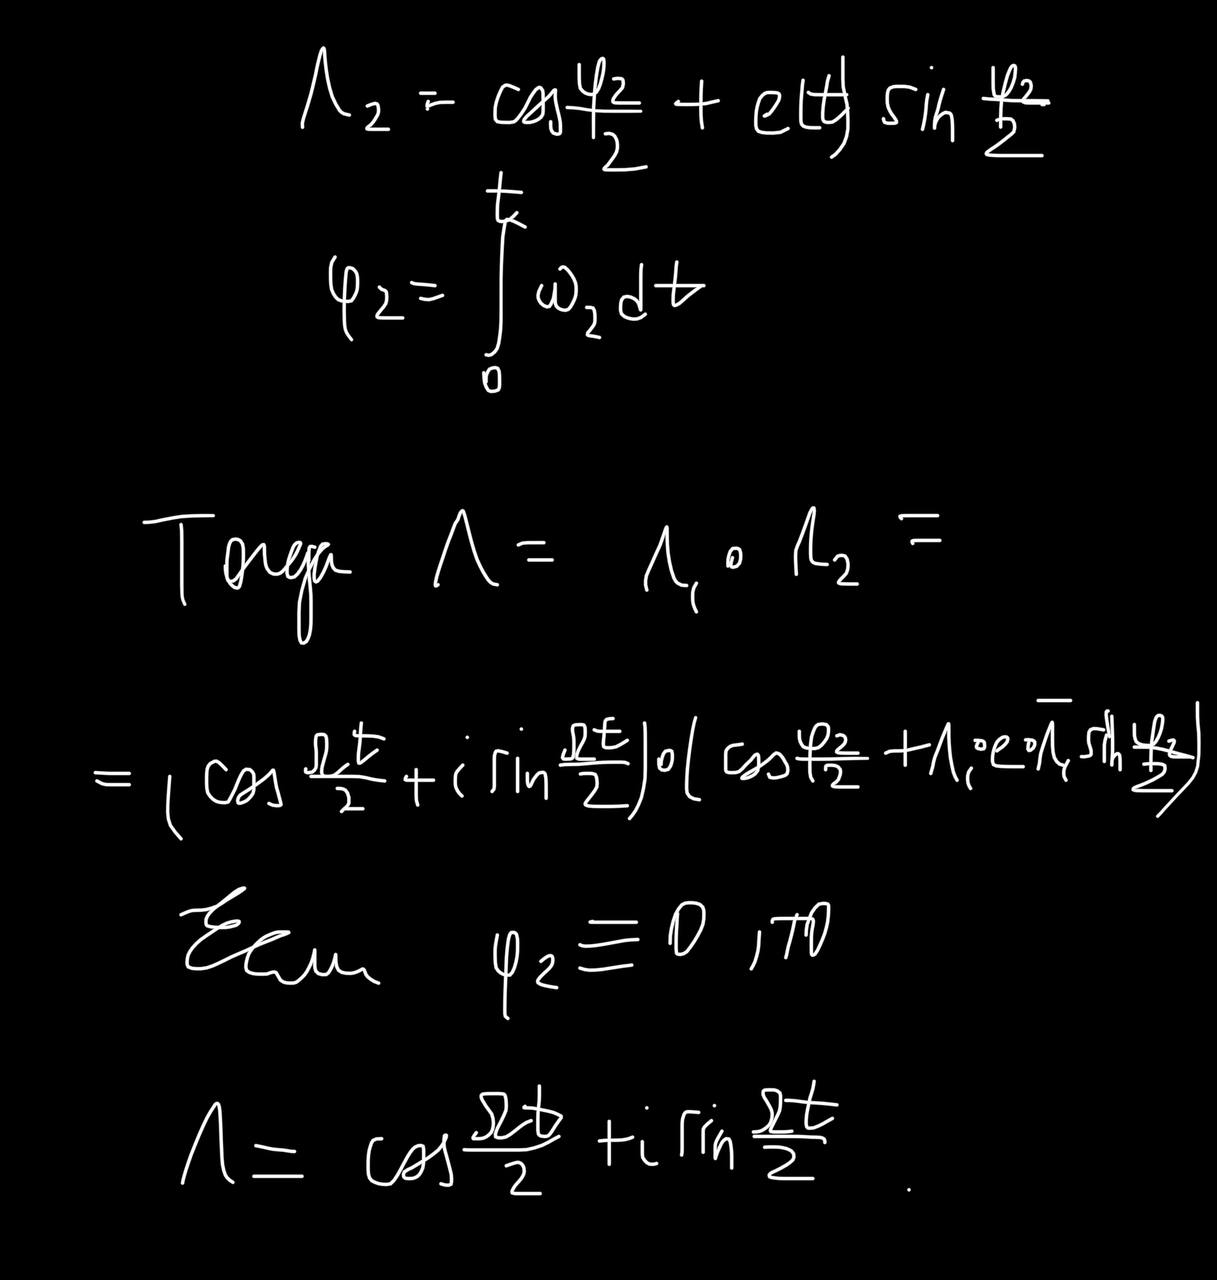 Λ₂ = cos φ₂/2 + e(t) sin φ₂/2
φ₂ = ∫₀ᵗ ω₂ dt
Тогда Λ = Λ₁ ∘ Λ₂ =
= (cos Ωt/2 + i sin Ωt/2) ∘ (cos φ₂/2 + Λ₁ ∘ e ∘ Λ̅₁ sin φ₂/2)
Если φ₂ ≡ 0, то
Λ = cos Ωt/2 + i sin Ωt/2 .